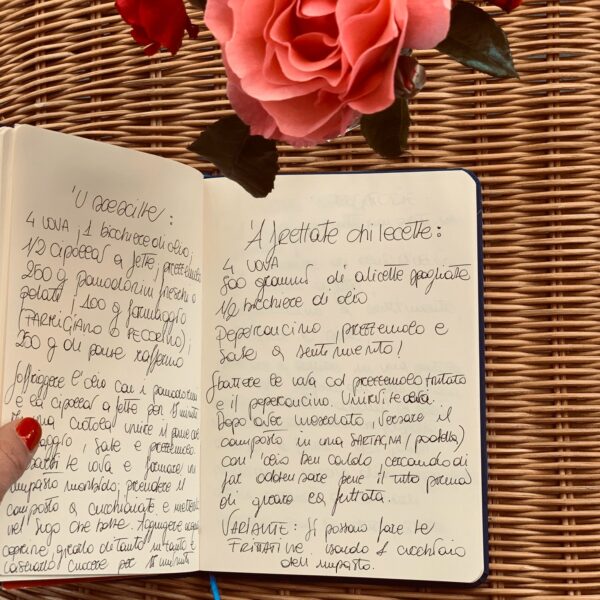 'U scescille:
4 UOVA, 1 bicchiere di olio,
1/2 cipolla a fette, prezzemolo
250 g pomodorini freschi o
pelati, 100 g formaggio
(PARMIGIANO o PECORINO);
250 g di pane raffermo
Soffriggere l'olio con i pomodorini
e la cipolla a fette per minuti
una ciotola unire il pane col
formaggio, sale e prezzemolo.
le uova e formare un
impasto morbido; prendere il
composto a cucchiaiate e metterlo
nel sugo che bolle. Aggiungere acqua
girarlo di tanto in tanto e
lasciarlo cuocere per minuti
'A frettate chi lecette:
4 UOVA
800 grammi di alicette spogliate
1/2 bicchiere di olio
Peperoncino, prezzemolo e
sale a sentimento!
Sbattere le uova col prezzemolo tritato
e il peperoncino. Unirvi le alici.
Dopo aver mescolato, versare il
composto in una SARTAGNA (padella)
con olio ben caldo, cercando di
far addensare bene il tutto prima
di girare la frittata.
VARIANTE: Si possono fare le
FRITTATINE usando 1 cucchiaio
dell'impasto.